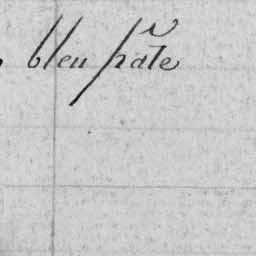 bleu pâle